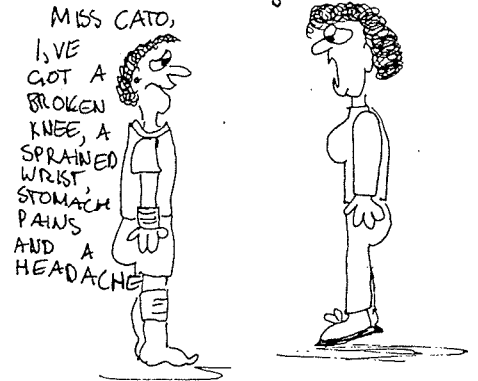 MISS CATO,
I,VE
GOT A
BROKEN
KNEE, A
SPRAINED
WRIST,
STOMACH
PAINS
AND A
HEADACHE